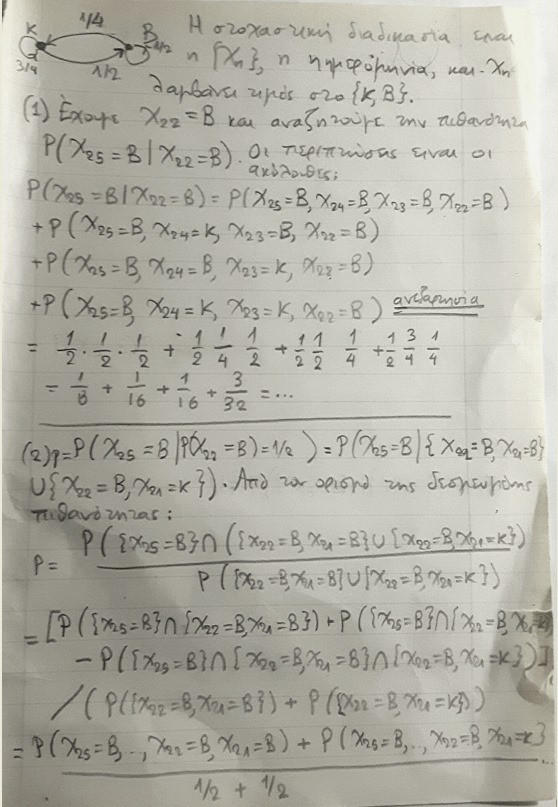 K 1/4 B 1/2
3/4 1/2
Η στοχαστική διαδικασία είναι
η {Xn}, n ημερομηνία, και Xn
λαμβάνει τιμές στο {K, B}.
(1) Έχουμε X22 = B και αναζητούμε την πιθανότητα
P(X25 = B | X22 = B). Οι περιπτώσεις είναι οι
ακόλουθες:
P(X25 = B | X22 = B) = P(X25 = B, X24 = B, X23 = B, X22 = B)
+ P(X25 = B, X24 = K, X23 = B, X22 = B)
+ P(X25 = B, X24 = B, X23 = K, X22 = B)
+ P(X25 = B, X24 = K, X23 = K, X22 = B) ανεξαρτησία
= 1/2 · 1/2 · 1/2 + 1/2 1/4 1/2 + 1/2 1/2 1/4 + 1/2 3/4 1/4
= 1/8 + 1/16 + 1/16 + 3/32 = ...
(2) p = P(X25 = B | P(X22 = B) = 1/2) = P(X25 = B | {X22 = B, X21 = B}
∪ {X22 = B, X21 = K}). Από τον ορισμό της δεσμευμένης
πιθανότητας:
p = P({X25 = B} ∩ ({X22 = B, X21 = B} ∪ {X22 = B, X21 = K})
P({X22 = B, X21 = B} ∪ {X22 = B, X21 = K})
= [P({X25 = B} ∩ {X22 = B, X21 = B}) + P({X25 = B} ∩ {X22 = B, X21 = K})
− P({X25 = B} ∩ {X22 = B, X21 = B} ∩ {X22 = B, X21 = K})]
/ (P({X22 = B, X21 = B}) + P({X22 = B, X21 = K}))
= P(X25 = B, .., X22 = B, X21 = B) + P(X25 = B, .., X22 = B, X21 = K) ...
1/2 + 1/2